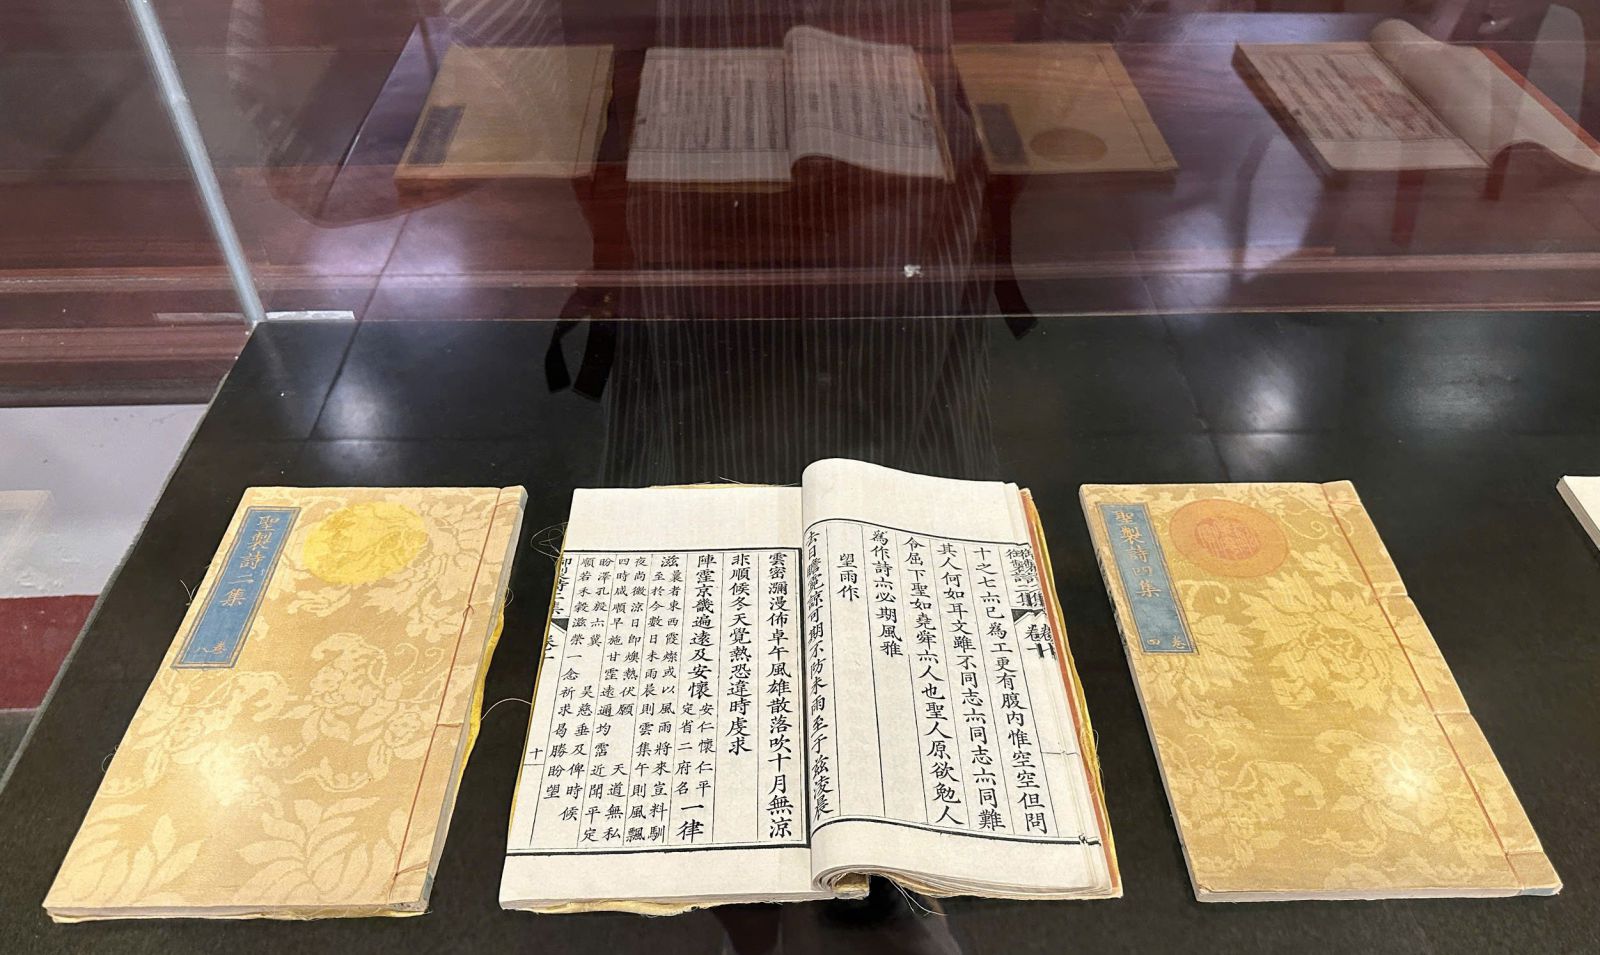 聖製詩二集
卷八
十之七亦已為工更有腹内惟空空但問
其人何如耳文雖不同志亦同志亦同難
令屈下聖如堯舜亦人也聖人原欲勉人
為作詩亦必期風雅
望雨作
涼何期不防未雨至于茲凌晨
雲密瀰漫佈卓午風雄散落吹十月無涼
非順候冬天覺熱恐違時虔求
陣霔京畿遍遠及安懷安仁懷仁平定省二府名一律
滋曩者東西霞燦或以風雨將來豈料馴
至於今數日未雨晨則雲集午則風飄
夜尚微涼日即燠熱伏願 天道無私
四時咸順早施甘霔遠邇均霑近聞平定
盼澤孔殷亦冀 昊慈垂及俾時候
順若禾穀滋榮一念祈求曷勝盼望
御製詩二集
十
聖製詩四集
卷四